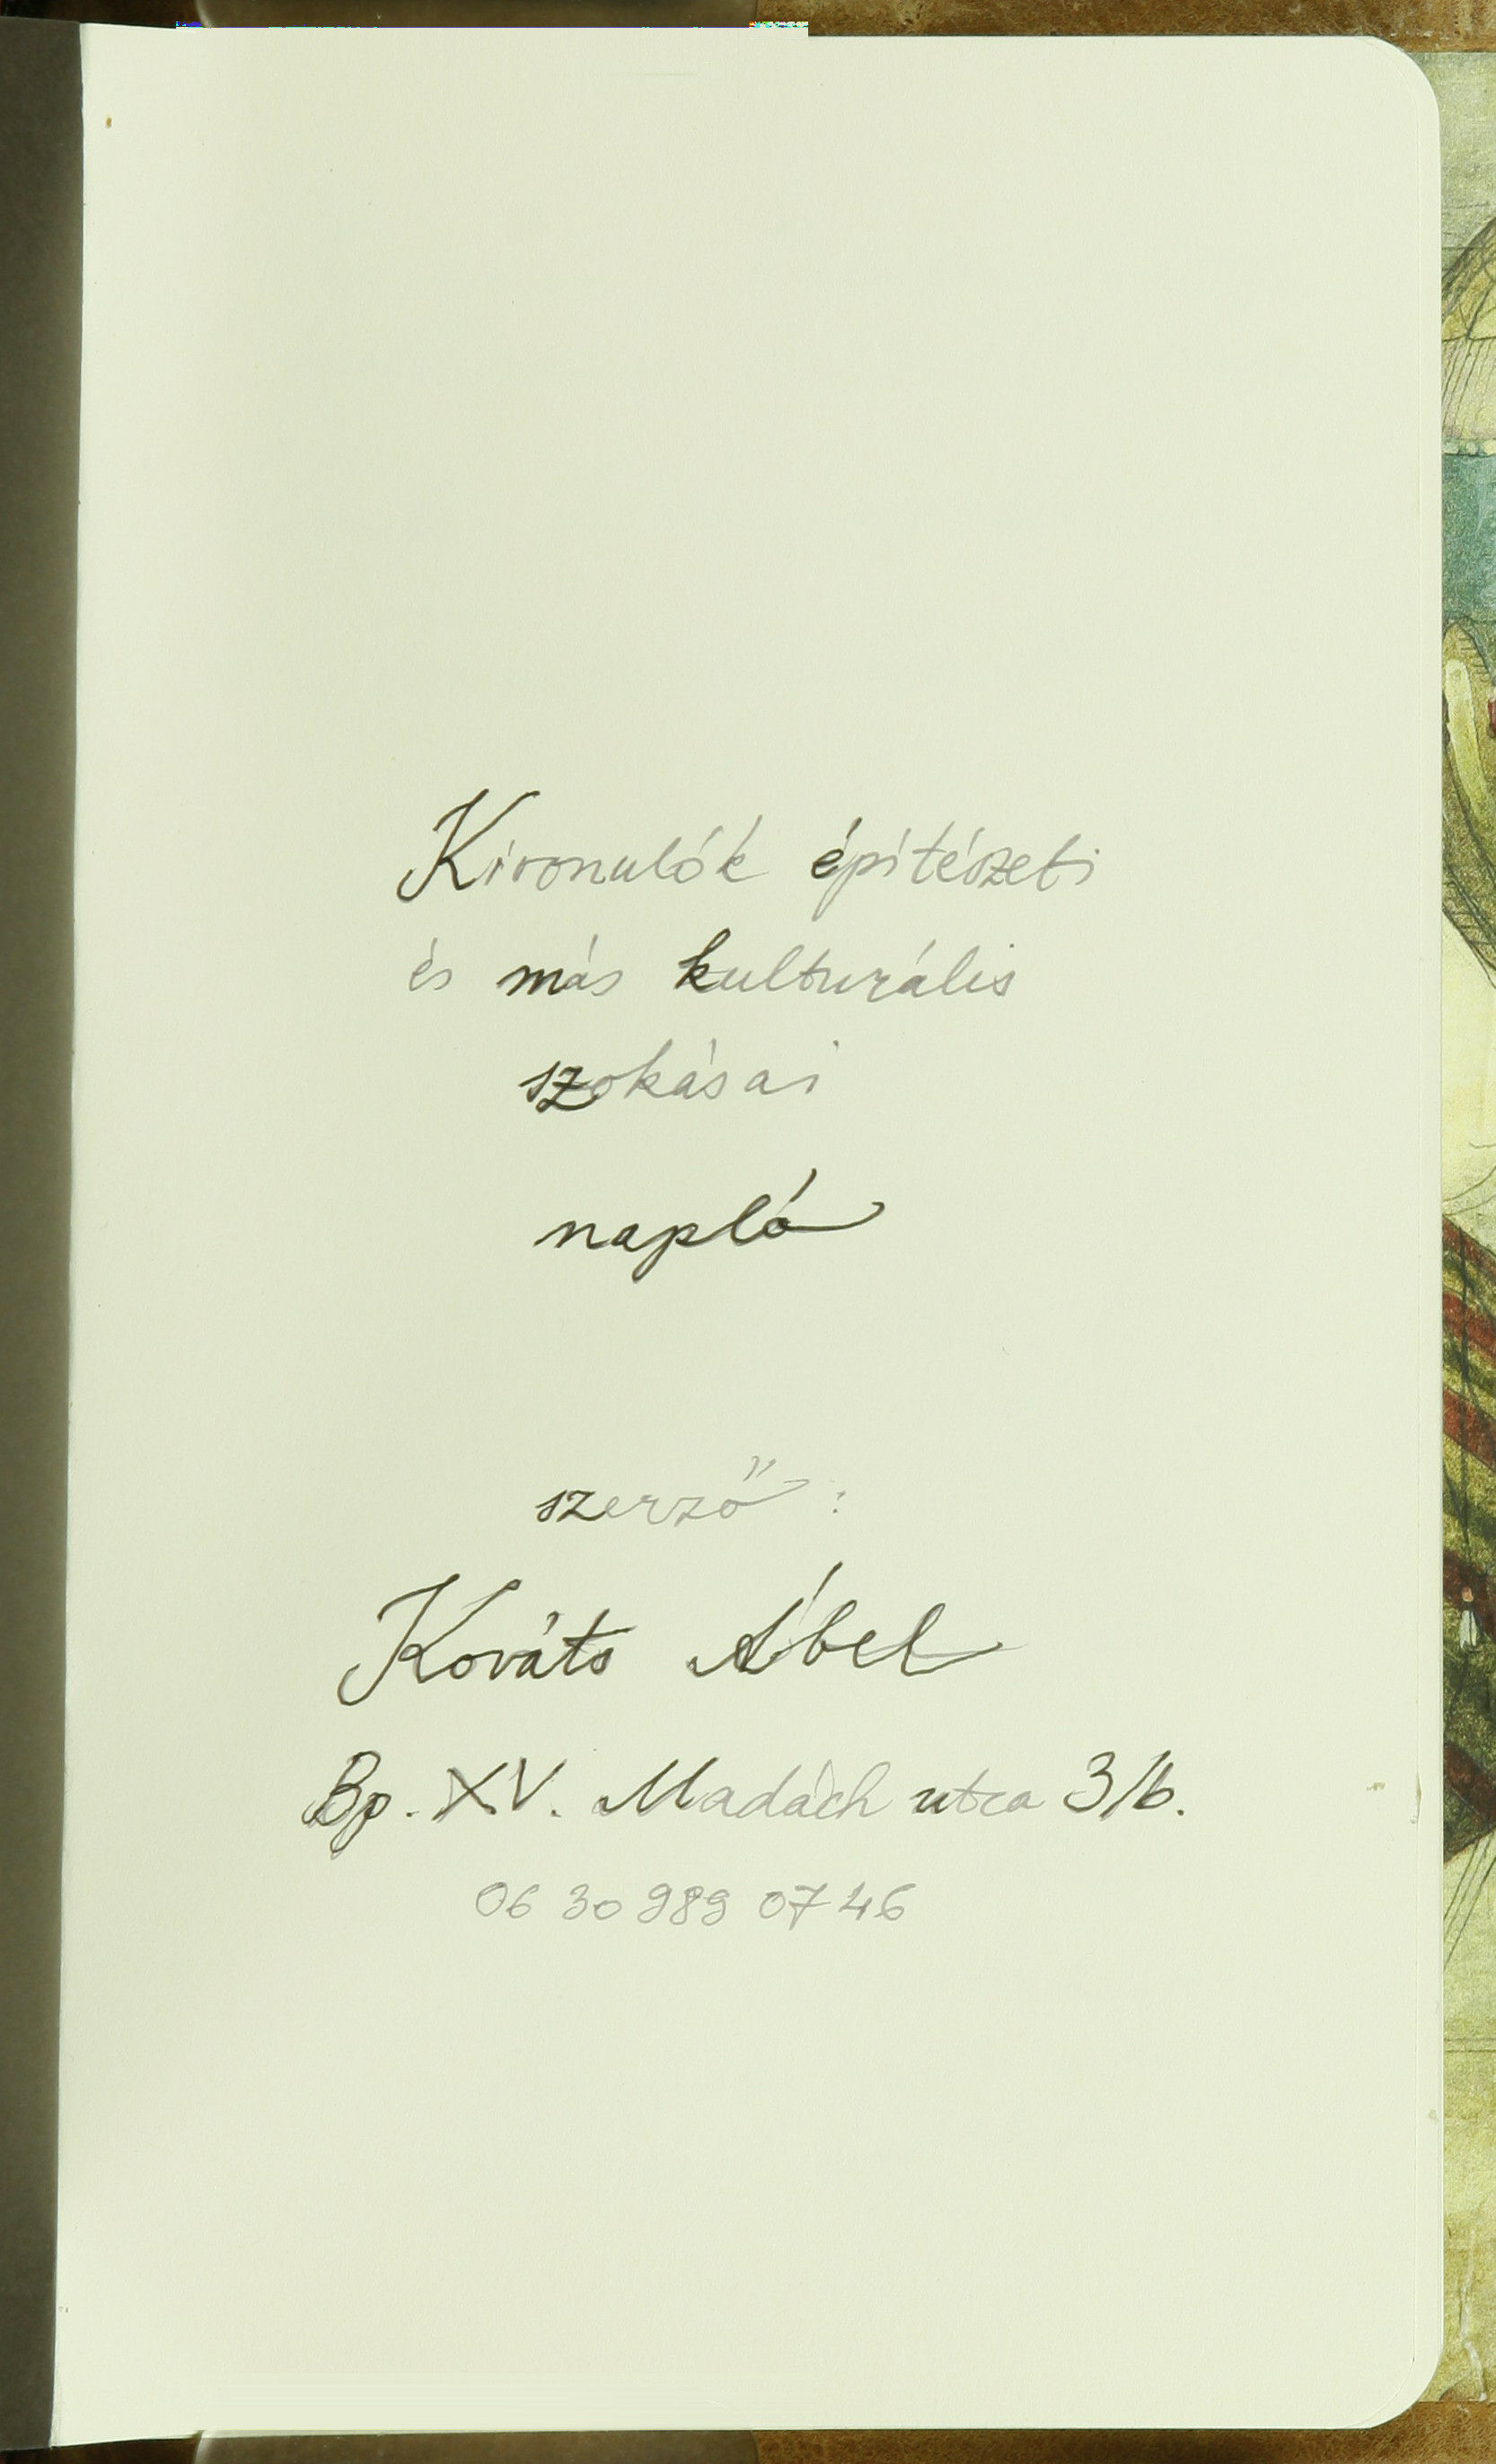 Kivonulók építészeti
és más kulturális
szokásai
napló
szerző:
Kováts Ábel
Bp. XV. Madách utca 3/b.
06 30 989 07 46